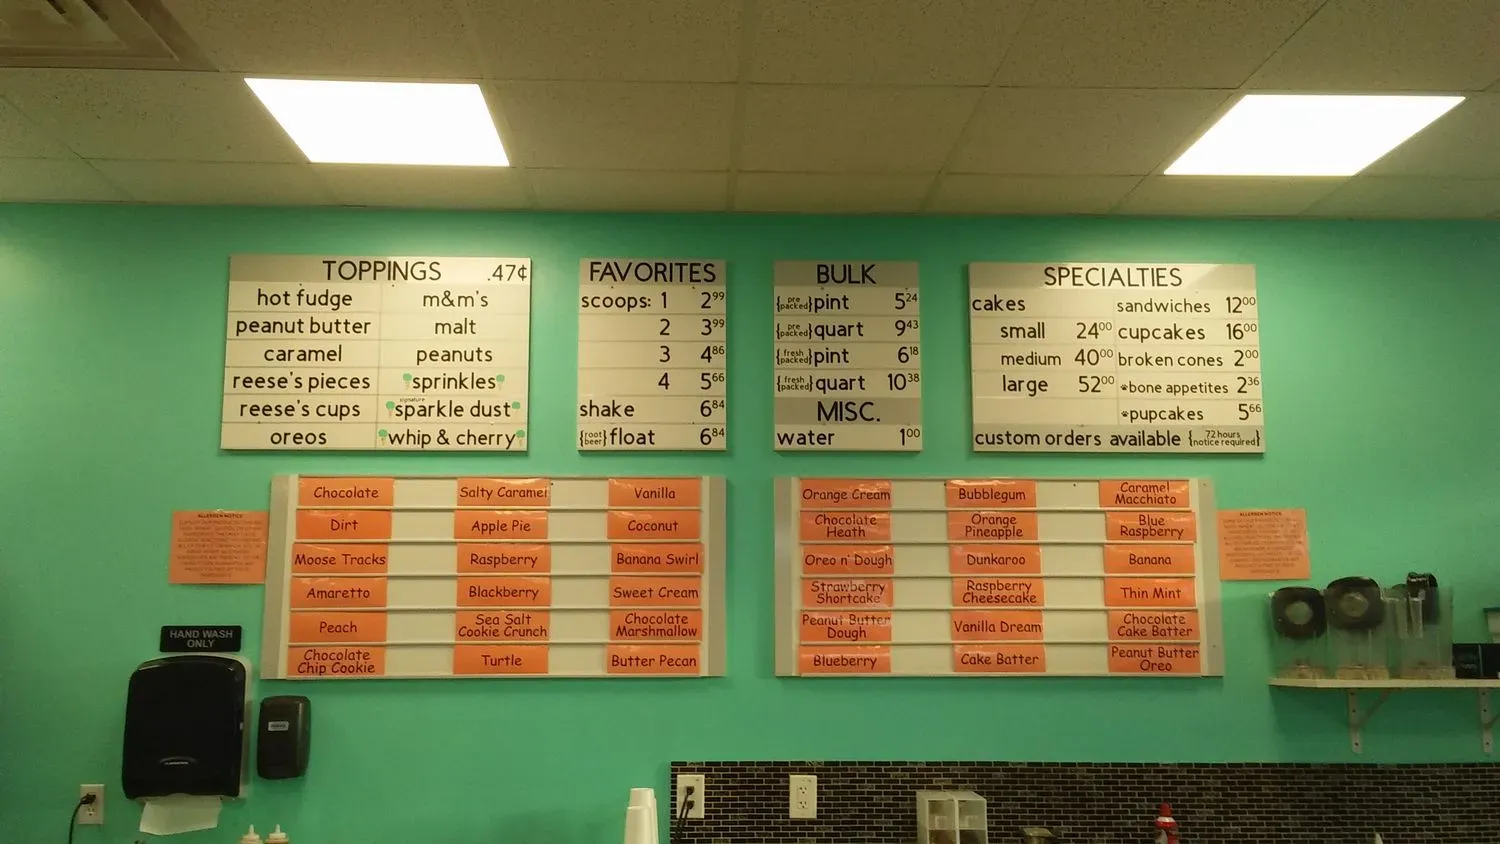 TOPPINGS .47¢
hot fudge m&m's
peanut butter malt
caramel peanuts
reese's pieces sprinkles
reese's cups signature sparkle dust
oreos whip & cherry
FAVORITES
scoops: 1 2⁹⁹
2 3⁹⁹
3 4⁸⁶
4 5⁶⁶
shake 6⁸⁴
{root beer} float 6⁸⁴
BULK
{pre packed} pint 5²⁴
{pre packed} quart 9⁴³
{fresh packed} pint 6¹⁸
{fresh packed} quart 10³⁸
MISC.
water 1⁰⁰
SPECIALTIES
cakes sandwiches 12⁰⁰
small 24⁰⁰ cupcakes 16⁰⁰
medium 40⁰⁰ broken cones 2⁰⁰
large 52⁰⁰ bone appetites 2³⁶
pupcakes 5⁶⁶
custom orders available {72 hours notice required}
ALLERGEN NOTICE
Chocolate Salty Caramel Vanilla
Dirt Apple Pie Coconut
Moose Tracks Raspberry Banana Swirl
Amaretto Blackberry Sweet Cream
Peach Sea Salt Cookie Crunch Chocolate Marshmallow
Chocolate Chip Cookie Turtle Butter Pecan
Orange Cream Bubblegum Caramel Macchiato
Chocolate Heath Orange Pineapple Blue Raspberry
Oreo n' Dough Dunkaroo Banana
Strawberry Shortcake Raspberry Cheesecake Thin Mint
Peanut Butter Dough Vanilla Dream Chocolate Cake Batter
Blueberry Cake Batter Peanut Butter Oreo
ALLERGEN NOTICE
HAND WASH
ONLY